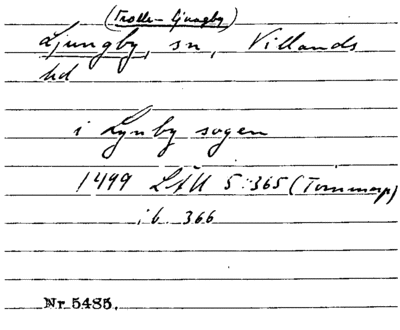 (Trolle-Ljungby)
Ljungby, sn, Villands
hd
i Lynby sogen
1499 LÄU 5:365 (Tommarp)
ib. 366
Nr 5485.